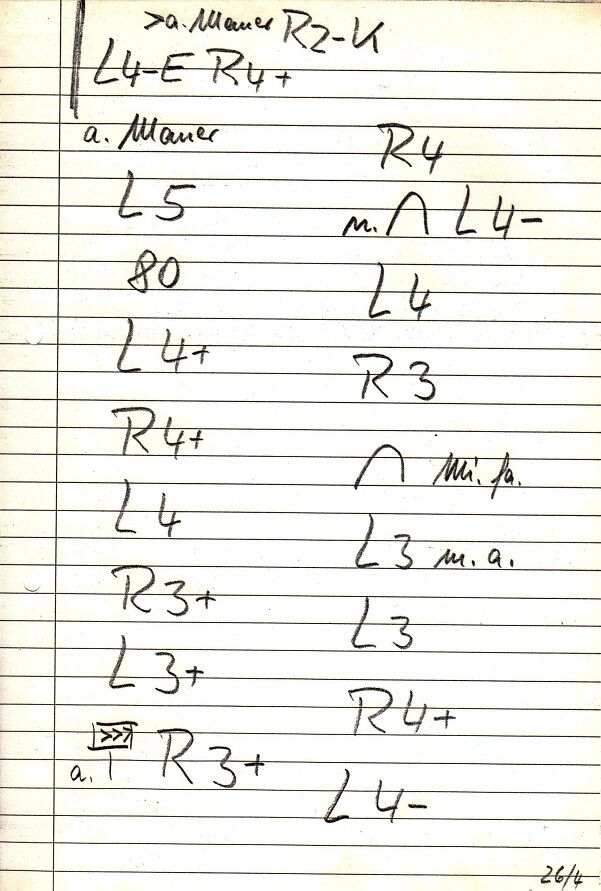 >a. Mauer R2-K
L4-E R4+
a. Mauer
L5
80
L4+
R4+
L4
R3+
L3+
>>>
a. R3+
R4
m. ∩ L4-
L4
R3
∩ Mi. fa.
L3 m. a.
L3
R4+
L4-
26/4